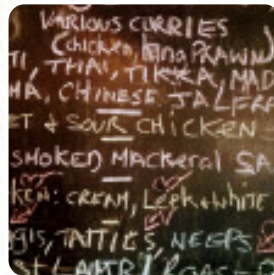 VARIOUS CURRIES
(Chicken, King PRAWN
TI, THAI, TIKKA, MAD
HA, CHINESE JALFR
ET & SOUR CHICKEN
SMOKED MACKeral SA
KEN: CREAM, Leek & White
GIS, TATTIES, NEEPS